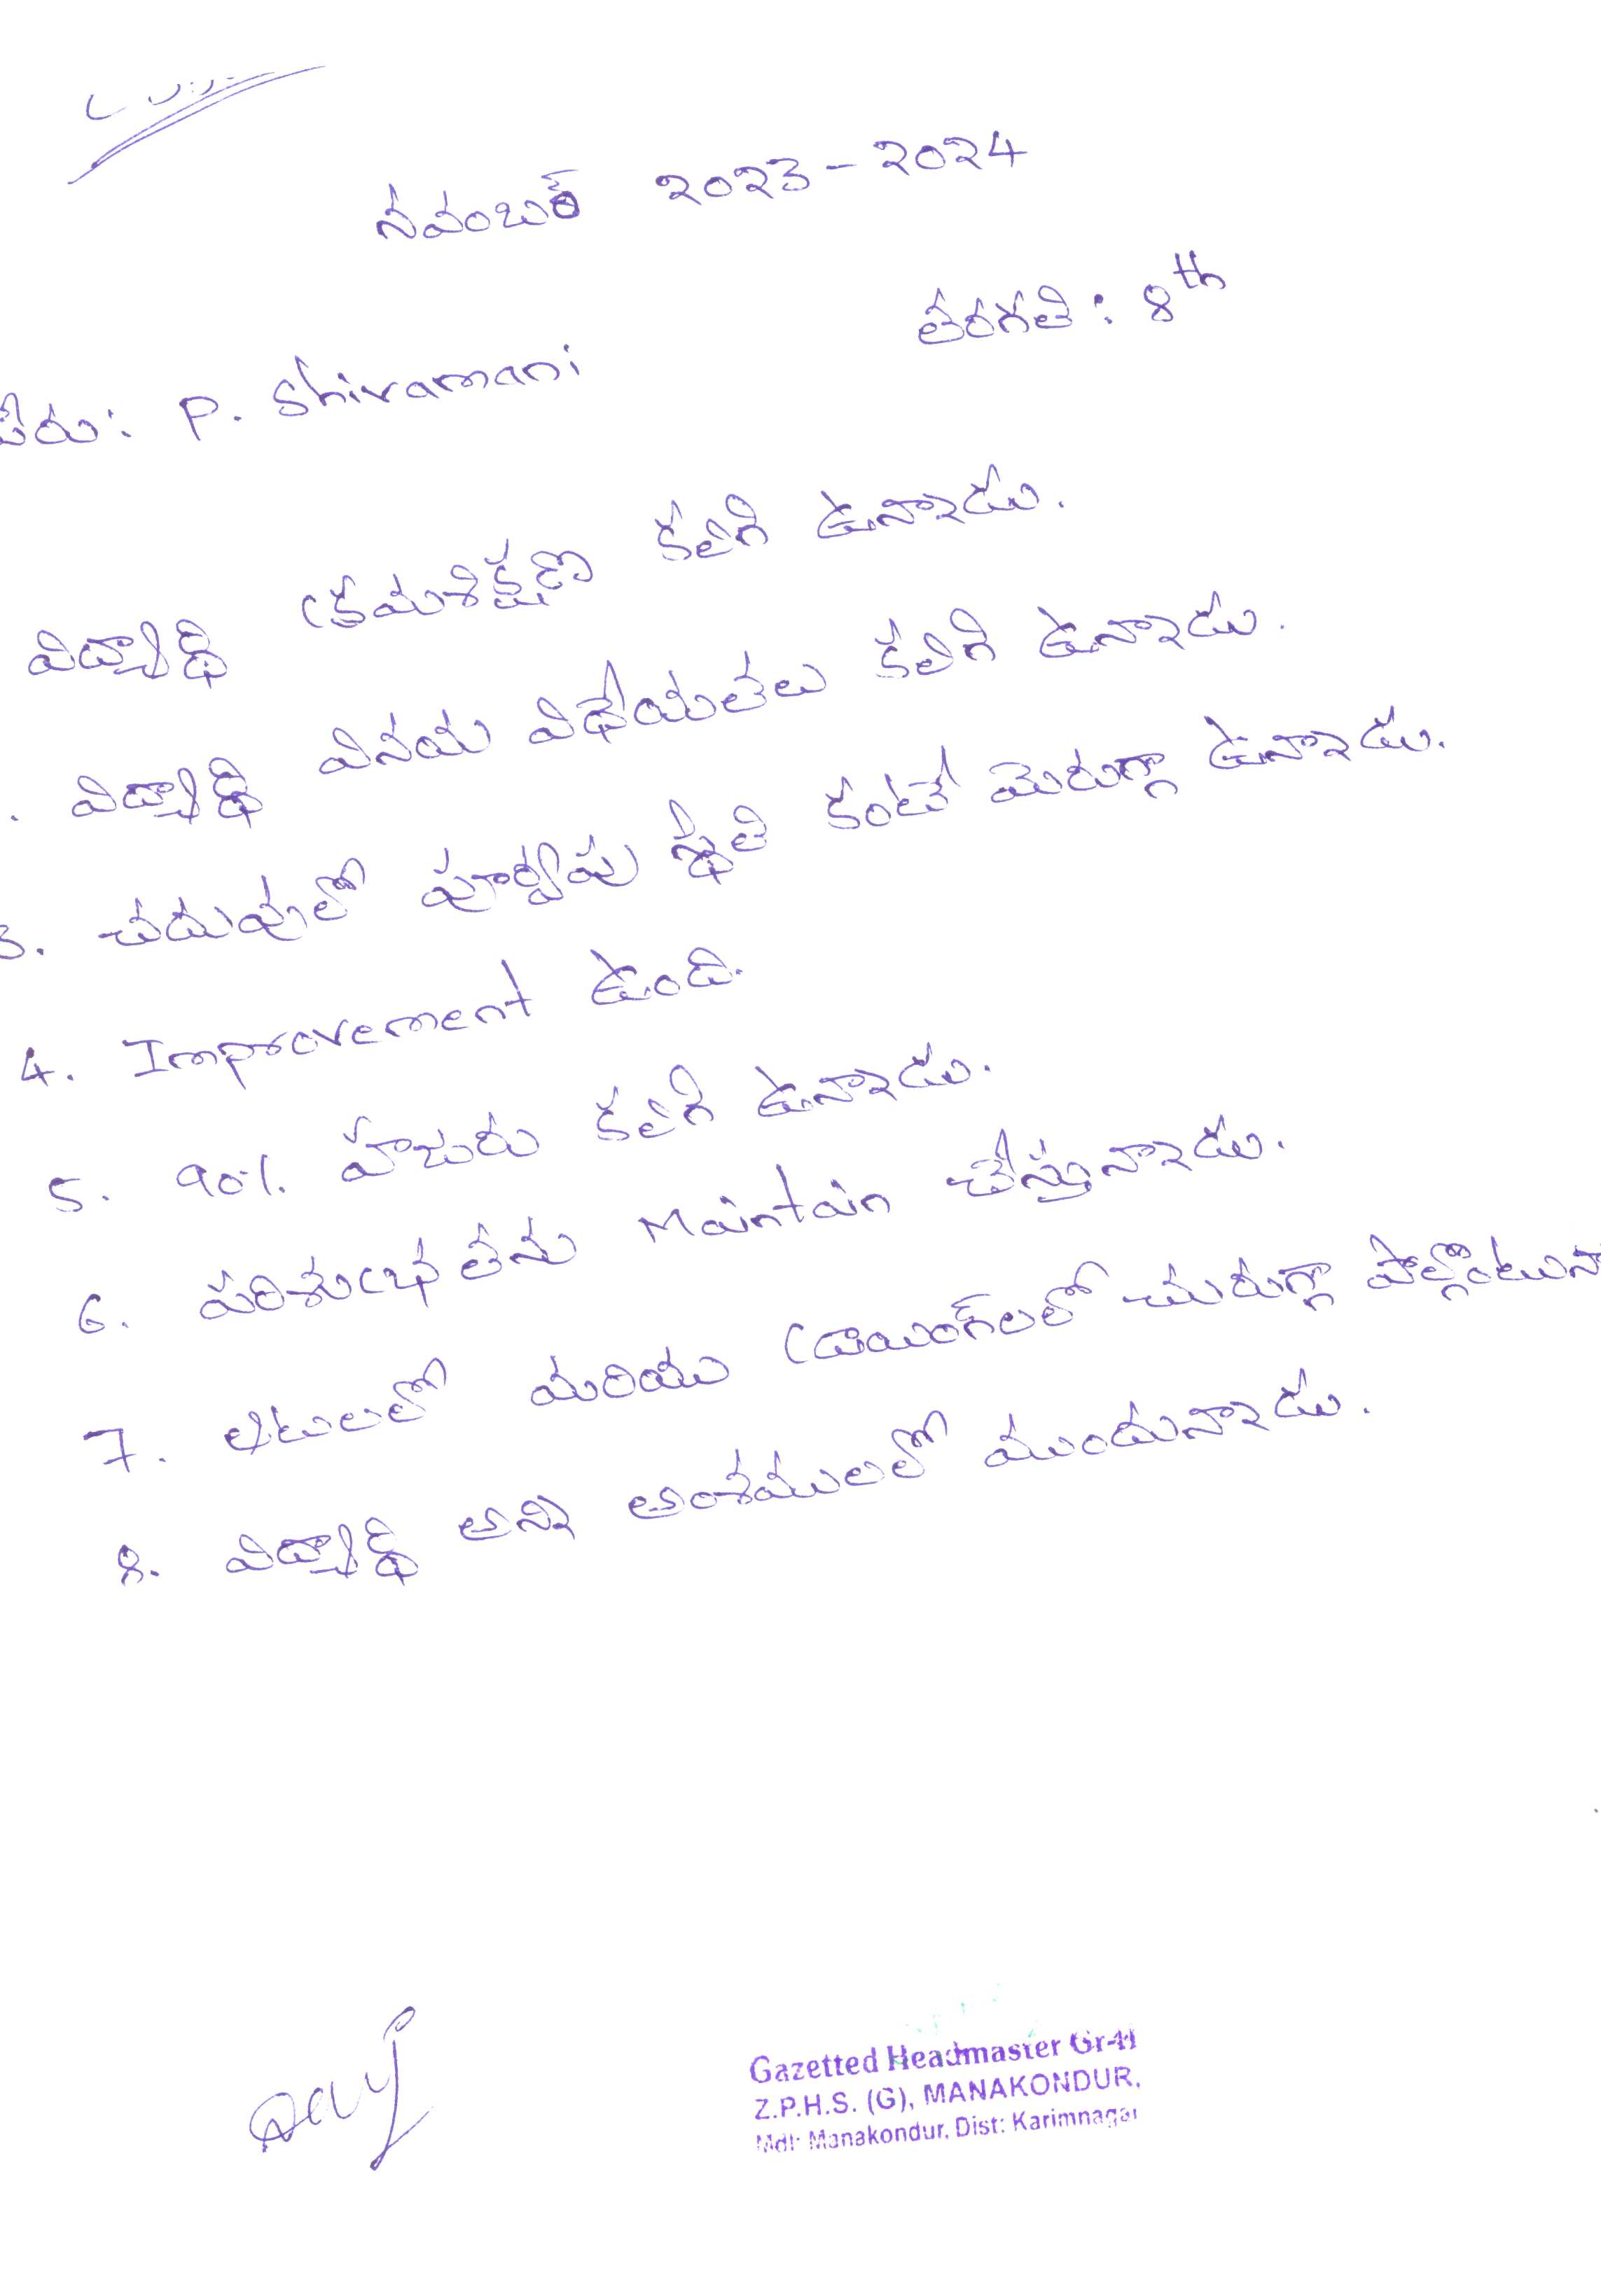 నవంబర్ 2023-2024
తరగతి: 8th
పేరు: P. Shivamani
విద్యార్థి క్రమశిక్షణ కలిగి ఉన్నాడు.
. విద్యార్థి వినయ విధేయతలు కలిగి ఉన్నాడు.
3. చదువులో పూర్వపు స్థితి కంటే మెరుగ్గా ఉన్నాడు.
4. Improvement ఉంది.
5. 90%. హాజరు కలిగి ఉన్నాడు.
6. పరిశుభ్రతను Maintain చేస్తునాడు.
7. ఆటలలో మరియు డ్రాయింగ్‌లలో చురుగ్గా
8. విద్యార్థి అన్ని అంశములలో ముందునాడు.
Gazetted Headmaster Gr-II
Z.P.H.S. (G), MANAKONDUR.
Mdl: Manakondur, Dist: Karimnagar